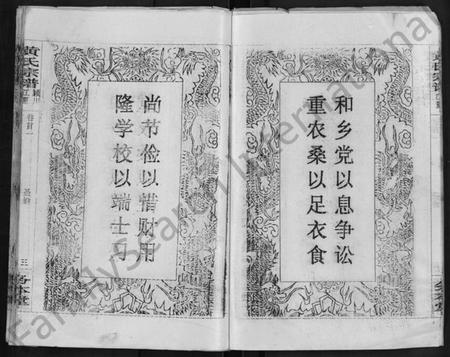 和乡党以息争讼
重农桑以足衣食
尚节俭以惜财用
隆学校以端士习
黄氏宗谱
卷首
三
FamilySearch International